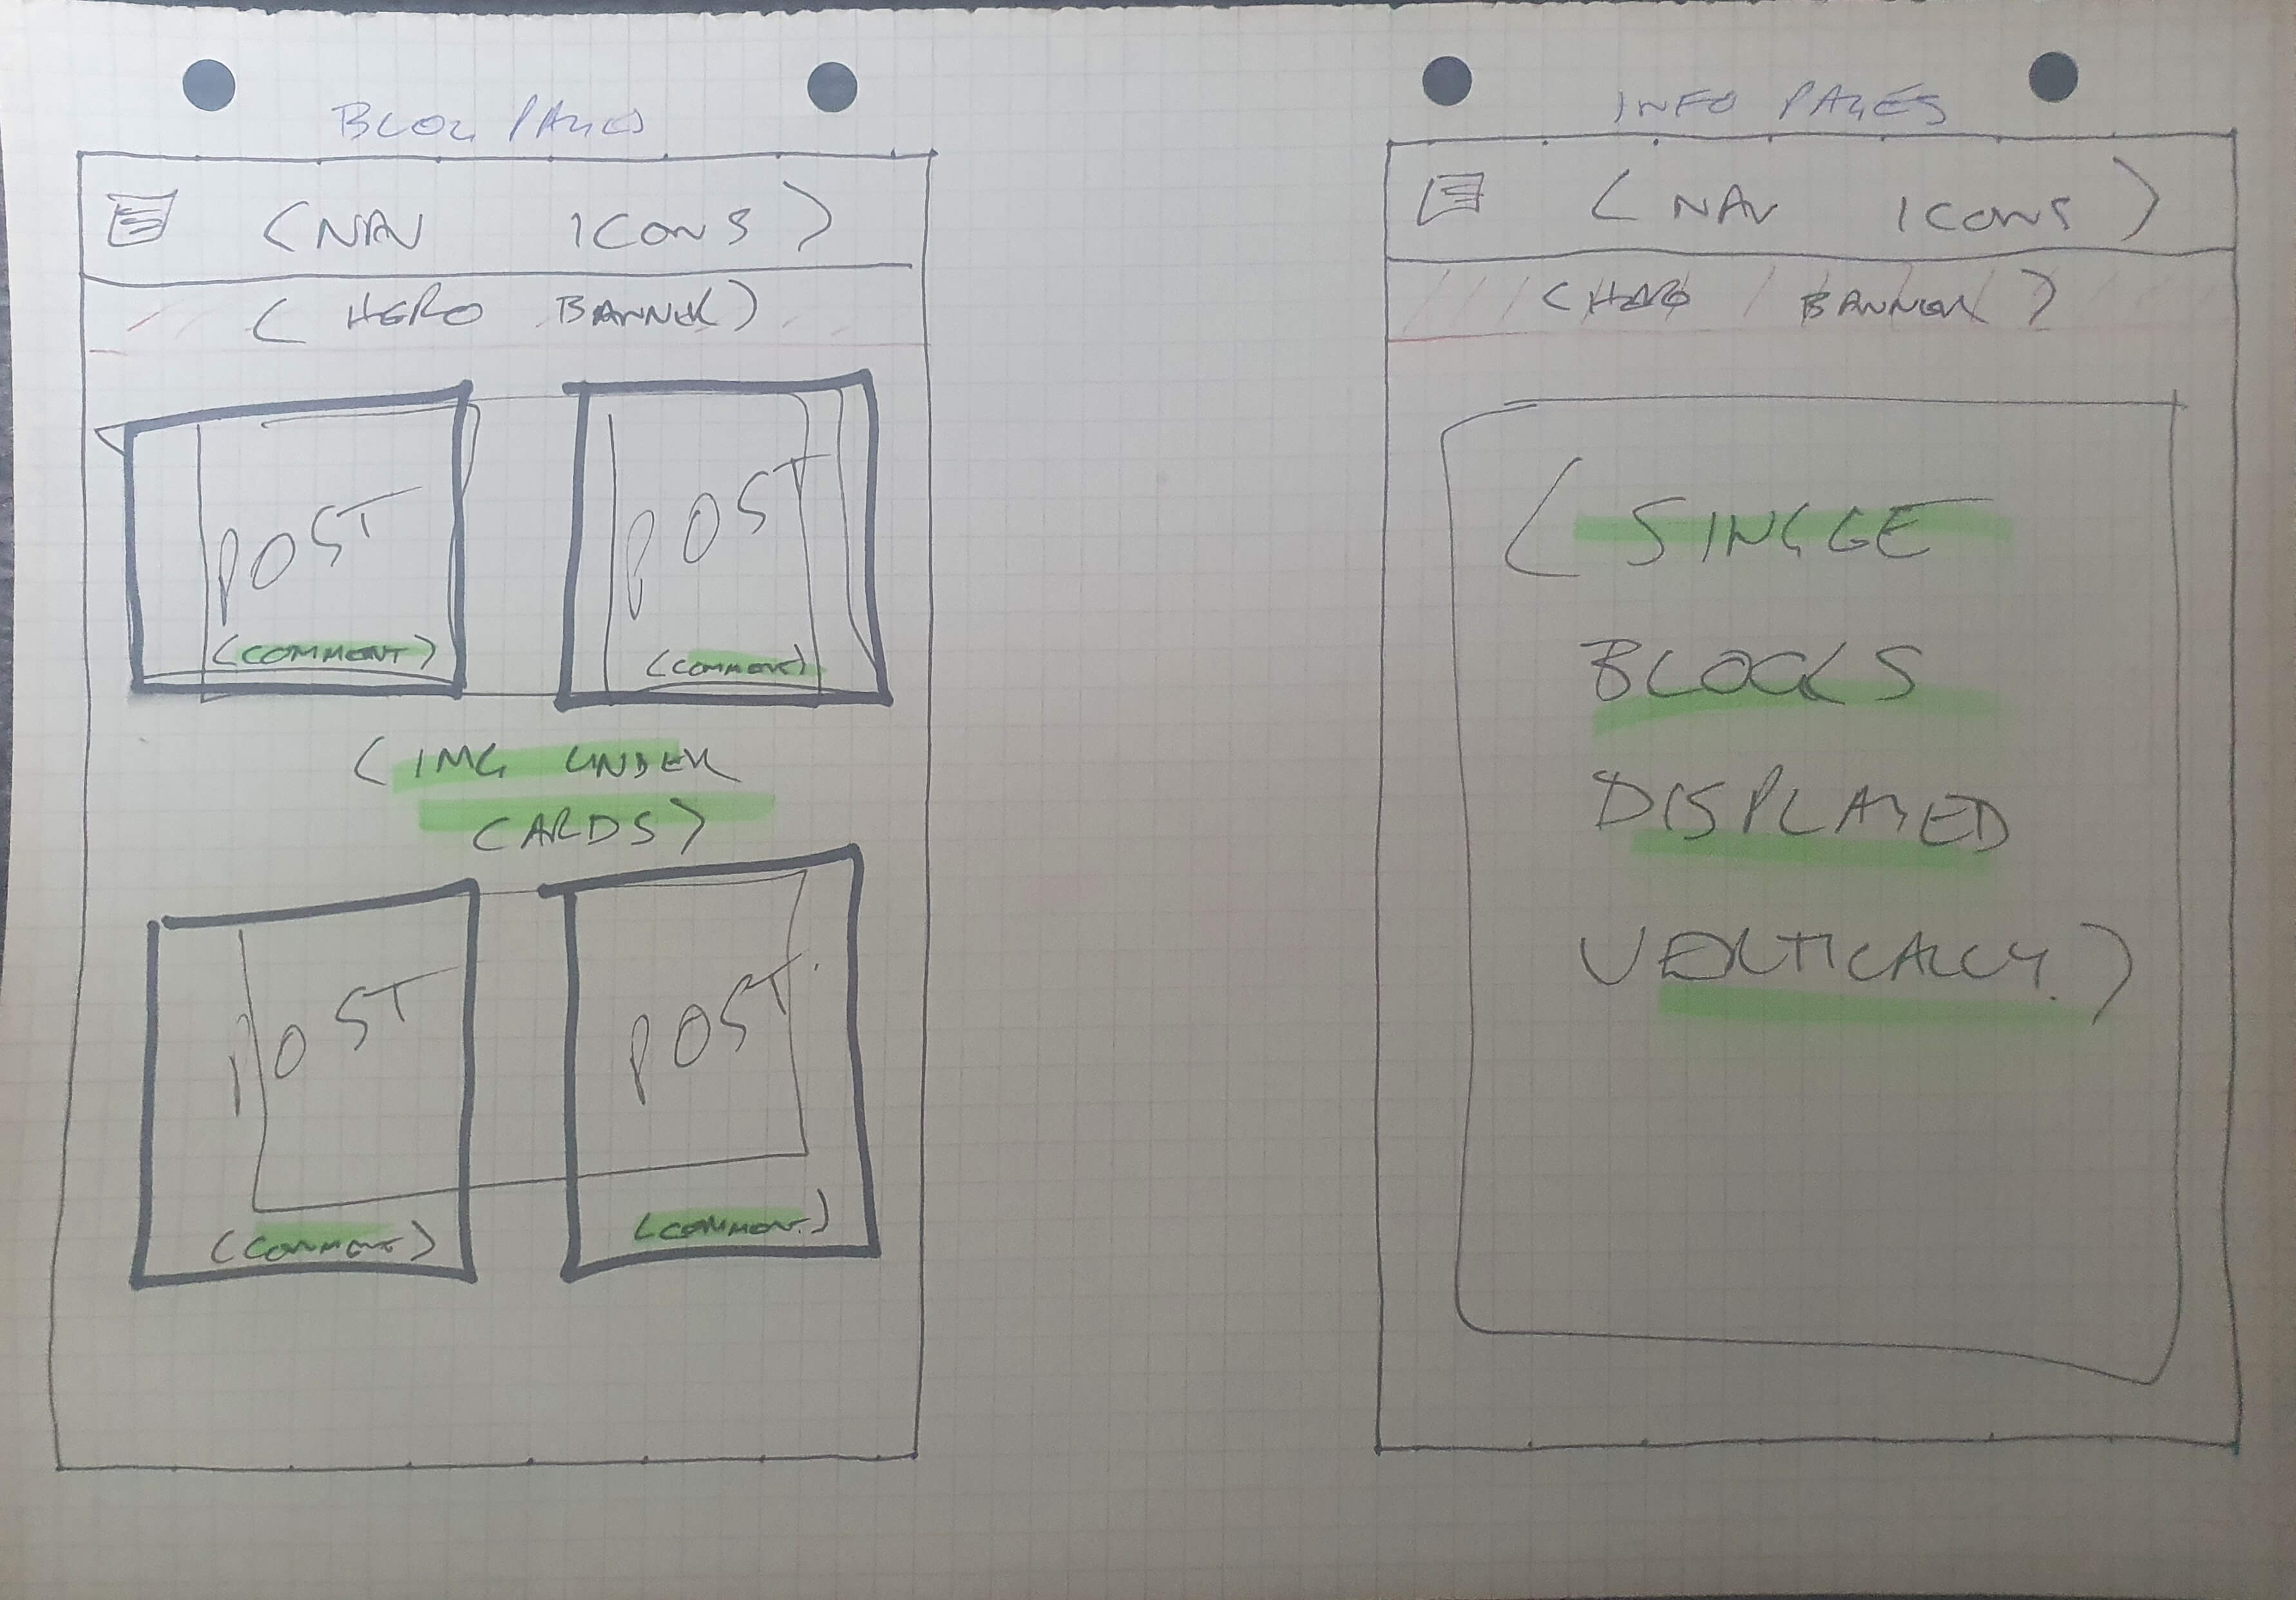 BLOG PAGES
(NAV ICONS)
(HERO BANNER)
POST
(COMMENT)
POST
(COMMENT)
(IMG UNDER
CARDS)
POST
(COMMENT)
POST.
(COMMENT.)
INFO PAGES
(NAV ICONS)
(HERO BANNER)
(SINGLE
BLOCKS
DISPLAYED
VERTICALLY.)